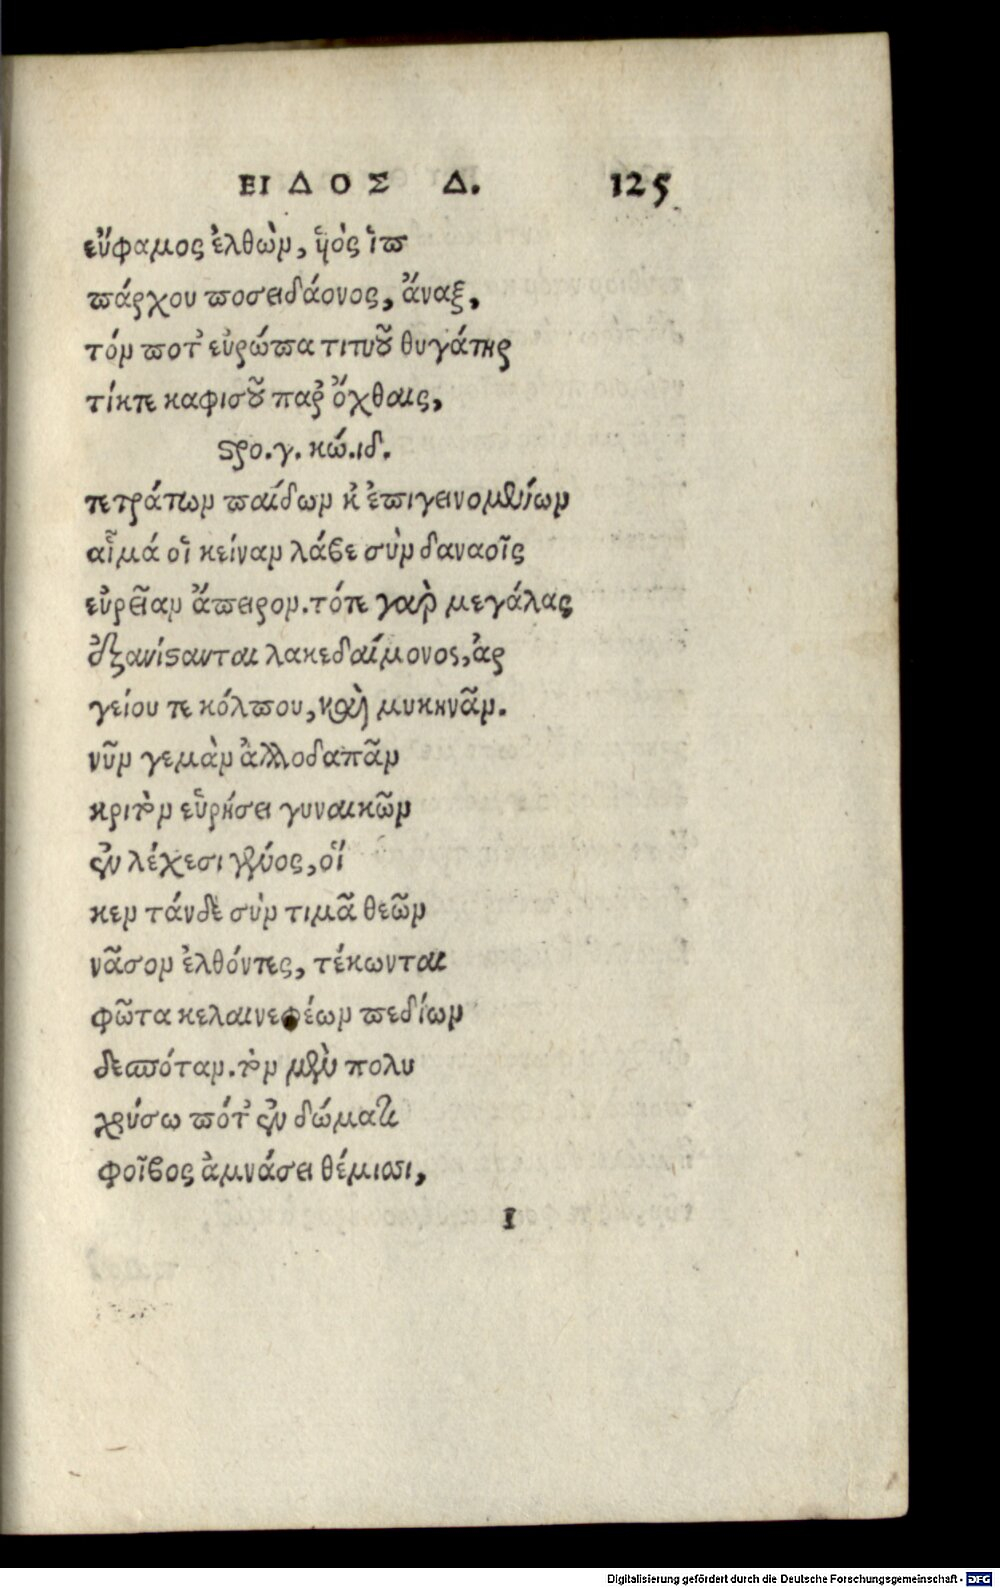 ΕΙΔΟΣ Δ. 125
εὔφαμος ἐλθὼν, ὑιὸς ἱπ
πάρχου ποσειδάονος, ἄναξ,
τόν ποτ' εὐρώπα τιτυοῦ θυγάτηρ
τίκτε καφισοῦ παρ' ὄχθαις,
στρο. γ. κώ. ιδ.
τετράτων παίδων κ' ἐπιγεινομένων
αἷμά οἱ κείναν λάβε σὺν δαναοῖς
εὐρεῖαν ἄπειρον. τότε γαρ μεγάλας
ἐξανίστανται λακεδαίμονος, ἀρ
γείου τε κόλπου, καὶ μυκηνᾶν.
νῦν γεμὰν ἀλλοδαπᾶν
κριτὸν εὑρήσει γυναικῶν
ἐν λέχεσι γένος, οἵ
κεν τάνδε σὺν τιμᾶ θεῶν
νᾶσον ἐλθόντες, τέκωνται
φῶτα κελαινεφέων πεδίων
δεσπόταν. τὸν μὲν πολυ
χρύσω πότ' ἐν δώματι
φοῖβος ἀμνάσει θέμισσι,
I
Digitalisierung gefördert durch die Deutsche Forschungsgemeinschaft - DFG